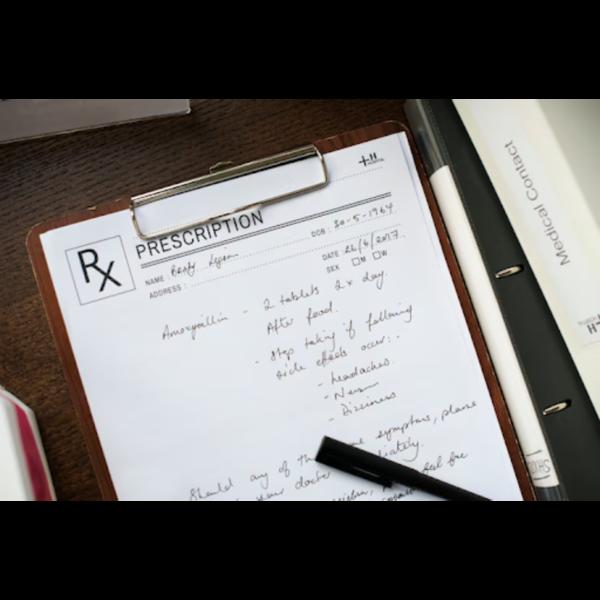 H
HOSPITAL
Rx PRESCRIPTION
NAME : DOB : 30-5-1964
ADDRESS : DATE 26/6/2017
SEX M W
Amoxycillin - 2 tablets 2x day.
After food.
- Stop taking if following
side effects occur:-
- headaches.
- Dizziness
Should any of symptoms, please
your doctor
feel free
Medical Contact